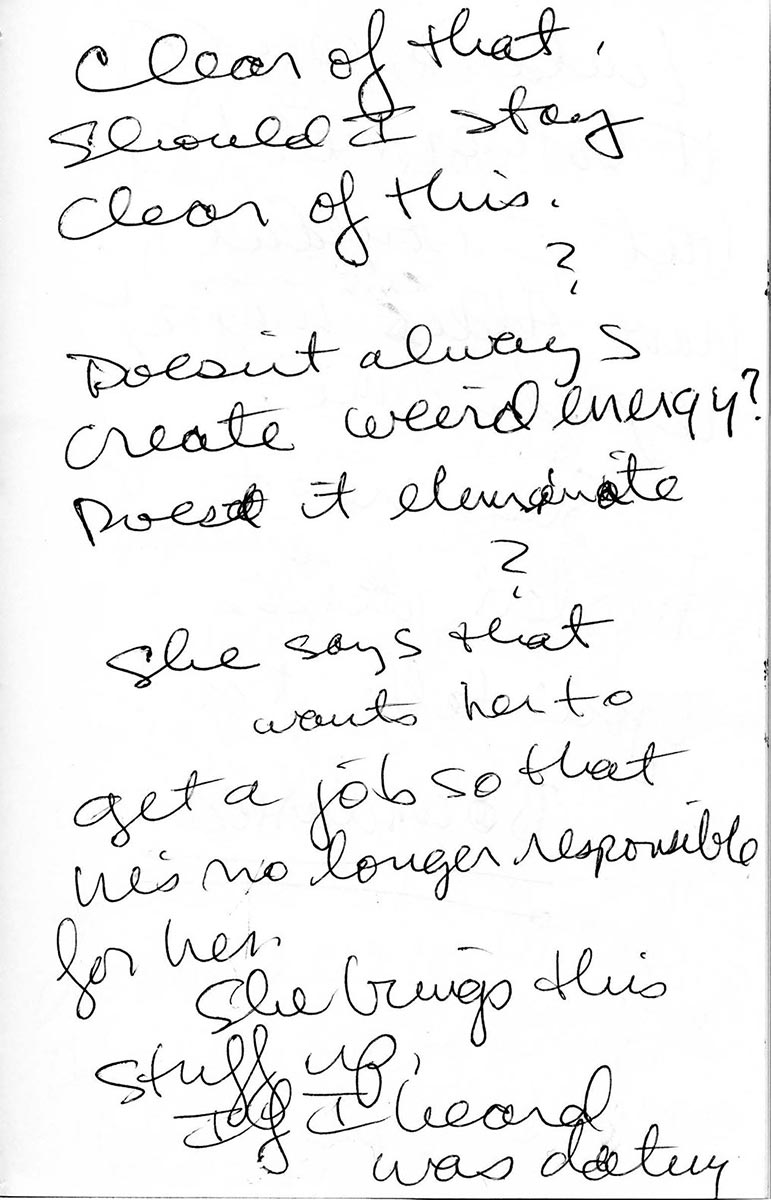 Clear of that.
Should I stay
clear of this.
?
Doesn't always
create weird energy?
Does it eliminate
?
She says that
wants her to
get a job so that
he's no longer responsible
for her.
She brings this
stuff up.
If I heard
was dating